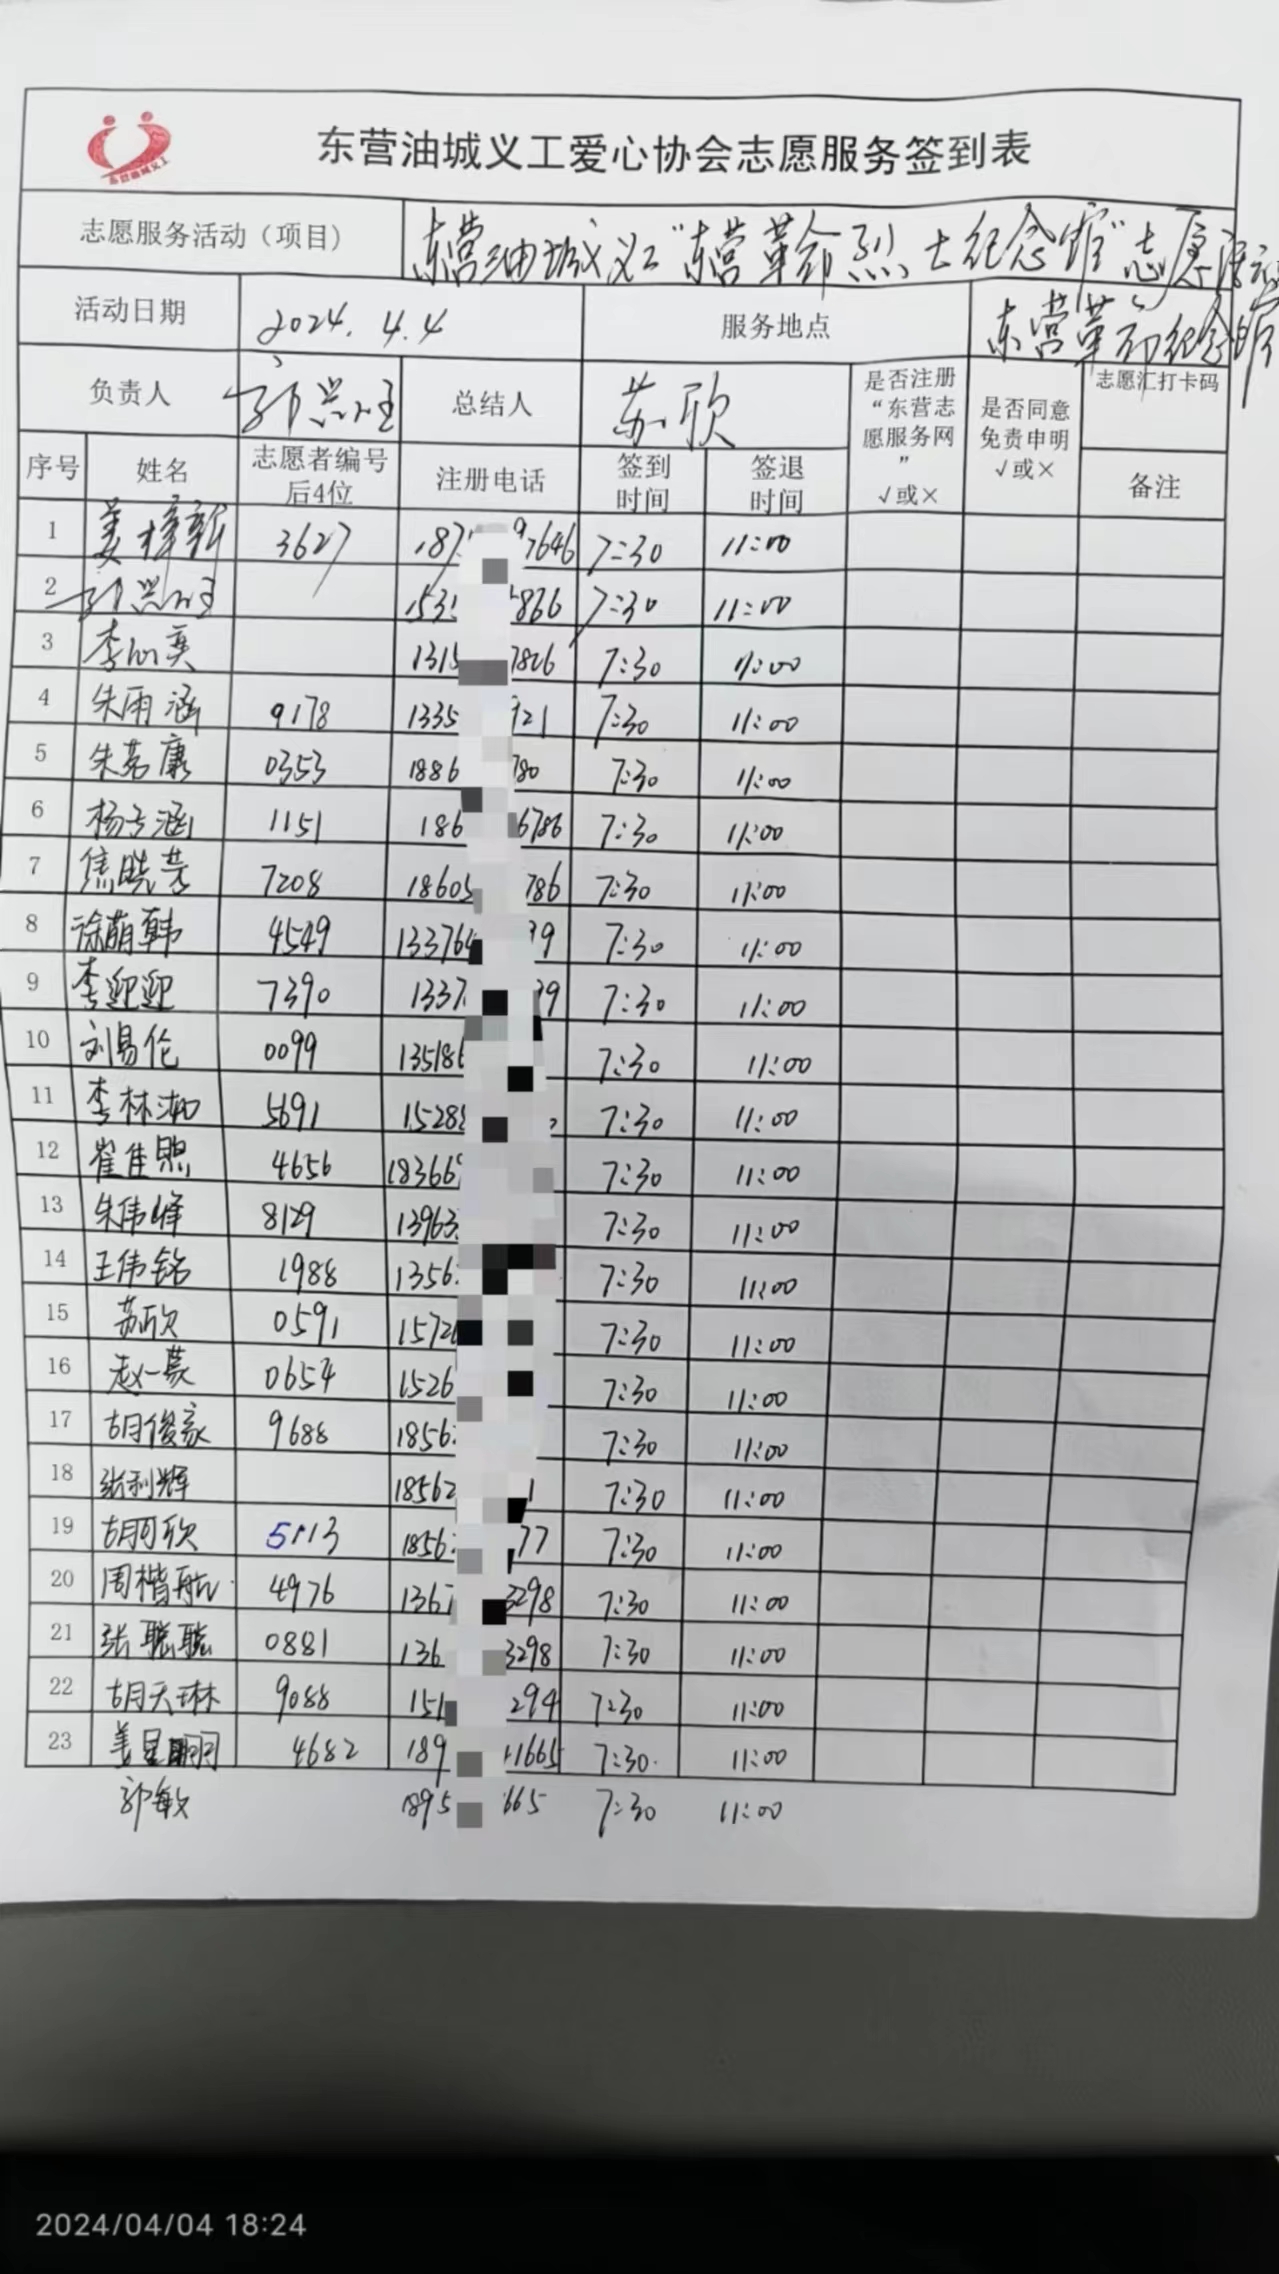 东营油城义工
东营油城义工爱心协会志愿服务签到表
志愿服务活动（项目） 东营油城义工"东营革命烈士纪念馆"志愿活动
活动日期 2024.4.4 服务地点 东营革命纪念馆
负责人 总结人 苏欣 是否注册“东营志愿服务网”√或× 是否同意免责申明√或× 志愿汇打卡码
序号 姓名 志愿者编号后4位 注册电话 签到时间 签退时间 备注
1 姜梓新 3627 187 7646 7:30 11:00
2 153 866 7:30 11:00
3 李心奕 1315 7826 7:30 11:00
4 朱雨涵 9178 1335 921 7:30 11:00
5 朱茗康 0353 1886 780 7:30 11:00
6 杨方涵 1151 186 6786 7:30 11:00
7 焦晓芳 7208 18605 786 7:30 11:00
8 徐萌韩 4549 133764 39 7:30 11:00
9 李迎迎 7390 1337 39 7:30 11:00
10 刘易伦 0099 135186 7:30 11:00
11 李林 5691 15288 7:30 11:00
12 崔佳熙 4656 18366 7:30 11:00
13 朱伟峰 8129 13963 7:30 11:00
14 王伟铭 1988 1356 7:30 11:00
15 苏欣 0591 1572 7:30 11:00
16 赵一蒙 0654 1526 7:30 11:00
17 胡俊豪 9688 1856 7:30 11:00
18 张利辉 18562 1 7:30 11:00
19 胡可欣 5113 1856 77 7:30 11:00
20 周楷航 4976 136 3298 7:30 11:00
21 张聪聪 0881 136 3298 7:30 11:00
22 胡天琳 9088 151 294 7:30 11:00
23 姜星 4682 189 1665 7:30 11:00
郭敏 1895 665 7:30 11:00
2024/04/04 18:24